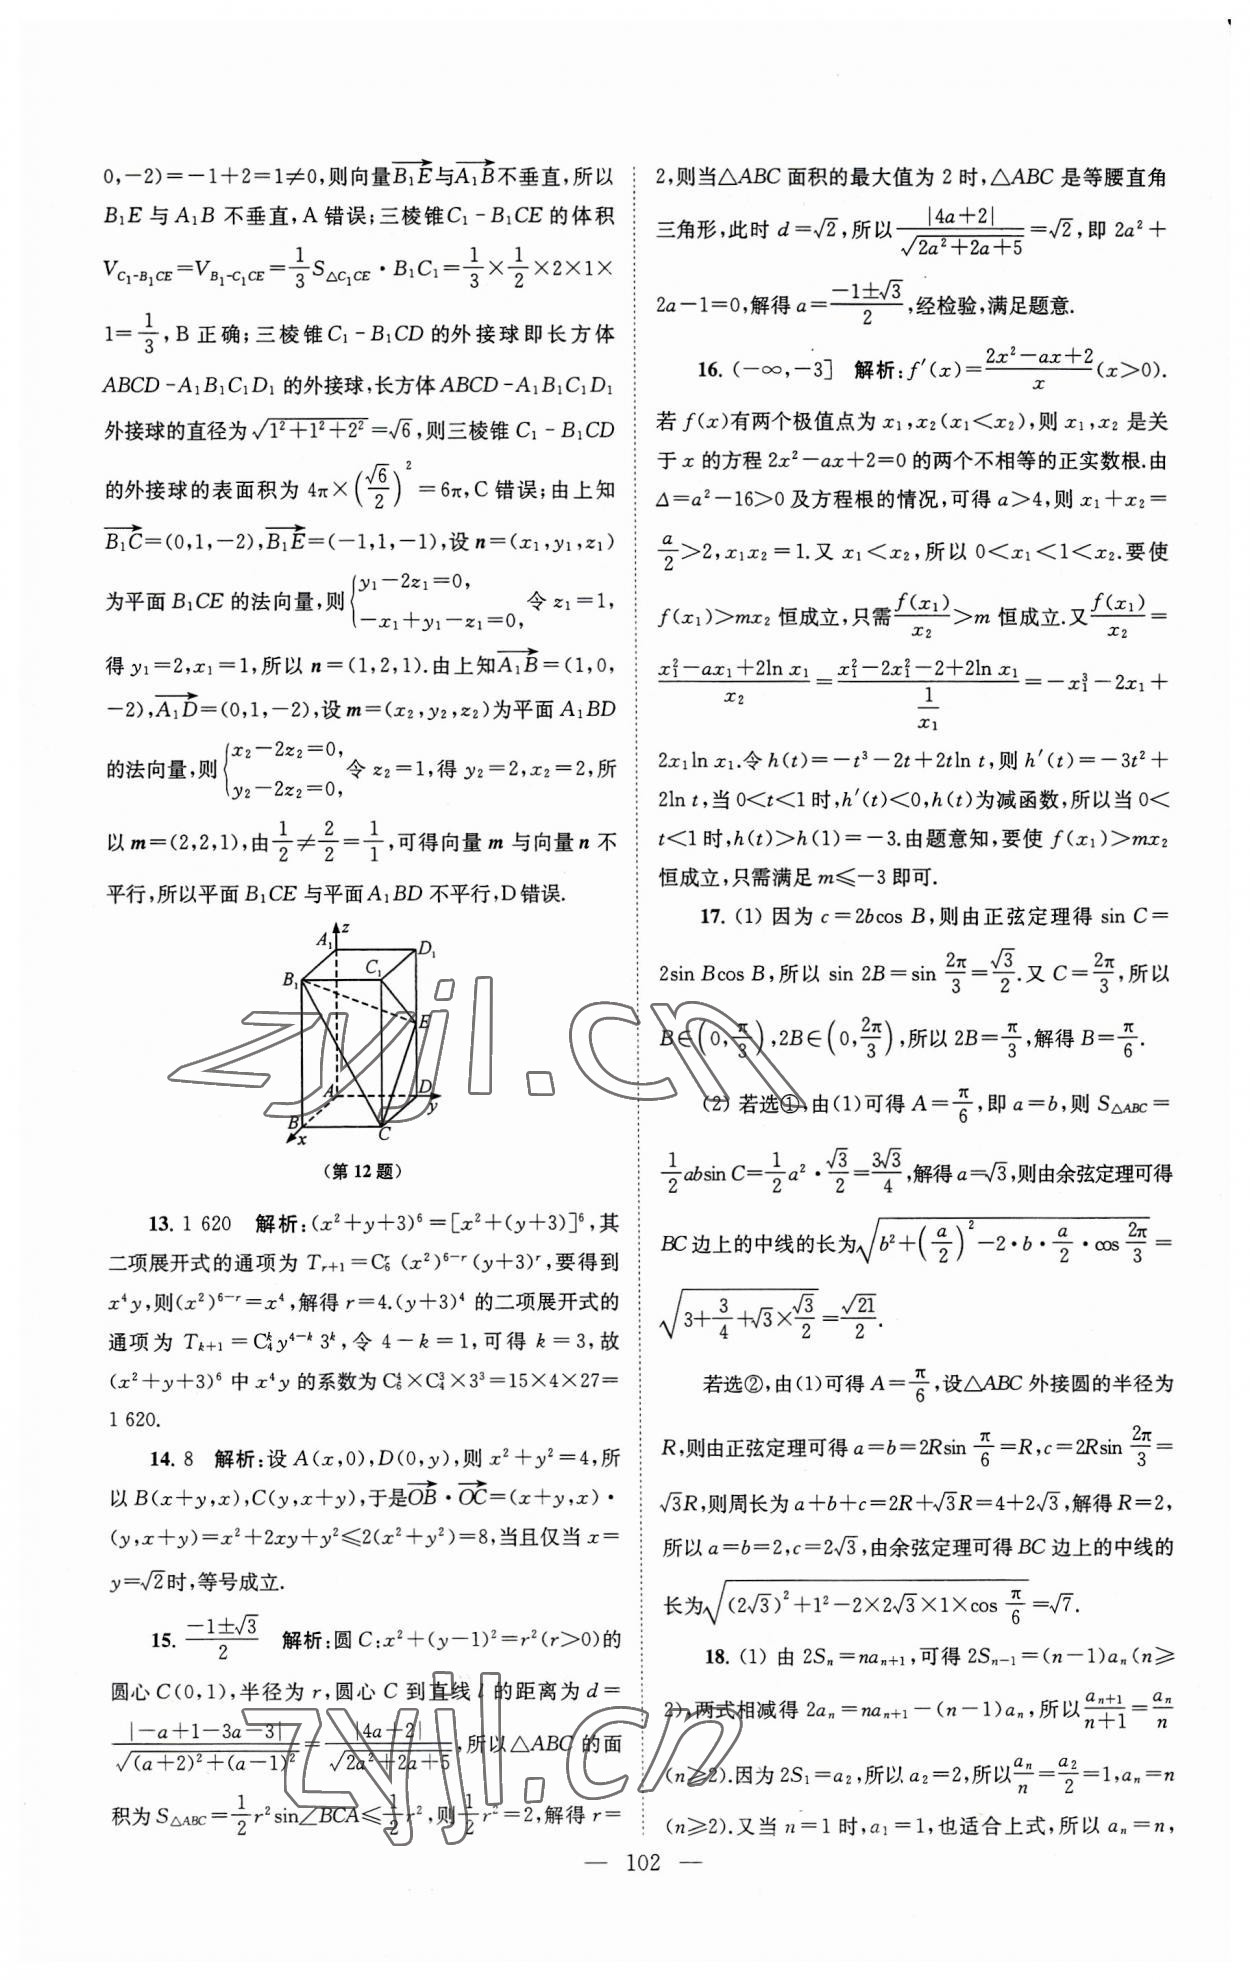 0,-2)=-1+2=1≠0,则向量$\overrightarrow{B_1E}$与$\overrightarrow{A_1B}$不垂直,所以
B₁E 与 A₁B 不垂直,A 错误;三棱锥C₁-B₁CE 的体积
$V_{C_1-B_1CE}=V_{B_1-C_1CE}=\frac{1}{3}S_{\triangle C_1CE}·B_1C_1=\frac{1}{3}×\frac{1}{2}×2×1×$
$1=\frac{1}{3}$,B 正确;三棱锥 C₁-B₁CD 的外接球即长方体
ABCD-A₁B₁C₁D₁ 的外接球,长方体 ABCD-A₁B₁C₁D₁
外接球的直径为$\sqrt{1^2+1^2+2^2}=\sqrt{6}$,则三棱锥 C₁-B₁CD
的外接球的表面积为 $4π×\left(\frac{\sqrt{6}}{2}\right)^2=6π$,C 错误;由上知
$\overrightarrow{B_1C}=(0,1,-2),\overrightarrow{B_1E}=(-1,1,-1)$,设 n=(x₁,y₁,z₁)
为平面 B₁CE 的法向量,则$\begin{cases}y_1-2z_1=0,\\-x_1+y_1-z_1=0,\end{cases}$令 z₁=1,
得 y₁=2,x₁=1,所以 n=(1,2,1).由上知$\overrightarrow{A_1B}$=(1,0,
-2),$\overrightarrow{A_1D}$=(0,1,-2),设 m=(x₂,y₂,z₂)为平面 A₁BD
的法向量,则$\begin{cases}x_2-2z_2=0,\\y_2-2z_2=0,\end{cases}$令 z₂=1,得 y₂=2,x₂=2,所
以 m=(2,2,1),由$\frac{1}{2}≠\frac{2}{2}=\frac{1}{1}$,可得向量 m 与向量 n 不
平行,所以平面 B₁CE 与平面 A₁BD 不平行,D 错误.
z
A₁
D₁
B₁
C₁
E
A
D
y
B
x
C
(第 12 题)
13. 1 620 解析:(x²+y+3)⁶=[x²+(y+3)]⁶,其
二项展开式的通项为 $T_{r+1}=C_6^r(x^2)^{6-r}(y+3)^r$,要得到
x⁴y,则$(x^2)^{6-r}=x^4$,解得 r=4.(y+3)⁴ 的二项展开式的
通项为 $T_{k+1}=C_4^ky^{4-k}3^k$,令 4-k=1,可得 k=3,故
(x²+y+3)⁶ 中 x⁴y 的系数为 $C_6^4×C_4^3×3^3=15×4×27=$
1 620.
14. 8 解析:设 A(x,0),D(0,y),则 x²+y²=4,所
以 B(x+y,x),C(y,x+y),于是$\overrightarrow{OB}·\overrightarrow{OC}=(x+y,x)·$
(y,x+y)=x²+2xy+y²≤2(x²+y²)=8,当且仅当 x=
y=$\sqrt{2}$时,等号成立.
15. $\frac{-1±\sqrt{3}}{2}$ 解析:圆 C:x²+(y-1)²=r²(r>0)的
圆心 C(0,1),半径为 r,圆心 C 到直线 l 的距离为 d=
$\frac{|-a+1-3a-3|}{\sqrt{(a+2)^2+(a-1)^2}}=\frac{|4a+2|}{\sqrt{2a^2+2a+5}}$,所以△ABC 的面
积为 $S_{\triangle ABC}=\frac{1}{2}r^2\sin∠BCA≤\frac{1}{2}r^2$,则$\frac{1}{2}r^2=2$,解得 r=
2,则当△ABC 面积的最大值为 2 时,△ABC 是等腰直角
三角形,此时 d=$\sqrt{2}$,所以$\frac{|4a+2|}{\sqrt{2a^2+2a+5}}=\sqrt{2}$,即 2a²+
2a-1=0,解得 a=$\frac{-1±\sqrt{3}}{2}$,经检验,满足题意.
16. (-∞,-3] 解析:$f'(x)=\frac{2x^2-ax+2}{x}(x>0)$.
若 f(x)有两个极值点为 x₁,x₂(x₁<x₂),则 x₁,x₂ 是关
于 x 的方程 2x²-ax+2=0 的两个不相等的正实数根.由
Δ=a²-16>0 及方程根的情况,可得 a>4,则 x₁+x₂=
$\frac{a}{2}$>2,x₁x₂=1.又 x₁<x₂,所以 0<x₁<1<x₂.要使
f(x₁)>mx₂ 恒成立,只需$\frac{f(x_1)}{x_2}$>m 恒成立.又$\frac{f(x_1)}{x_2}$=
$\frac{x_1^2-ax_1+2\ln x_1}{x_2}=\frac{x_1^2-2x_1^2-2+2\ln x_1}{\frac{1}{x_1}}=-x_1^3-2x_1+$
2x₁ln x₁.令 h(t)=-t³-2t+2tln t,则 h′(t)=-3t²+
2ln t,当 0<t<1 时,h′(t)<0,h(t)为减函数,所以当 0<
t<1 时,h(t)>h(1)=-3.由题意知,要使 f(x₁)>mx₂
恒成立,只需满足 m≤-3 即可.
17. (1) 因为 c=2bcos B,则由正弦定理得 sin C=
2sin Bcos B,所以 sin 2B=sin $\frac{2π}{3}=\frac{\sqrt{3}}{2}$.又 C=$\frac{2π}{3}$,所以
B∈$\left(0,\frac{π}{3}\right)$,2B∈$\left(0,\frac{2π}{3}\right)$,所以 2B=$\frac{π}{3}$,解得 B=$\frac{π}{6}$.
(2) 若选①,由(1)可得 A=$\frac{π}{6}$,即 a=b,则 $S_{\triangle ABC}=$
$\frac{1}{2}ab\sin C=\frac{1}{2}a^2·\frac{\sqrt{3}}{2}=\frac{3\sqrt{3}}{4}$,解得 a=$\sqrt{3}$,则由余弦定理可得
BC 边上的中线的长为$\sqrt{b^2+\left(\frac{a}{2}\right)^2-2·b·\frac{a}{2}·\cos\frac{2π}{3}}=$
$\sqrt{3+\frac{3}{4}+\sqrt{3}×\frac{\sqrt{3}}{2}}=\frac{\sqrt{21}}{2}$.
若选②,由(1)可得 A=$\frac{π}{6}$,设△ABC 外接圆的半径为
R,则由正弦定理可得 a=b=2Rsin $\frac{π}{6}$=R,c=2Rsin $\frac{2π}{3}$=
$\sqrt{3}$R,则周长为 a+b+c=2R+$\sqrt{3}$R=4+2$\sqrt{3}$,解得 R=2,
所以 a=b=2,c=2$\sqrt{3}$,由余弦定理可得 BC 边上的中线的
长为$\sqrt{(2\sqrt{3})^2+1^2-2×2\sqrt{3}×1×\cos\frac{π}{6}}=\sqrt{7}$.
18. (1) 由 2Sₙ=naₙ₊₁,可得 2Sₙ₋₁=(n-1)aₙ(n≥
2),两式相减得 2aₙ=naₙ₊₁-(n-1)aₙ,所以$\frac{a_{n+1}}{n+1}=\frac{a_n}{n}$
(n≥2).因为 2S₁=a₂,所以 a₂=2,所以$\frac{a_n}{n}=\frac{a_2}{2}$=1,aₙ=n
(n≥2).又当 n=1 时,a₁=1,也适合上式,所以 aₙ=n,
— 102 —
zyjl.cn
zyjl.cn